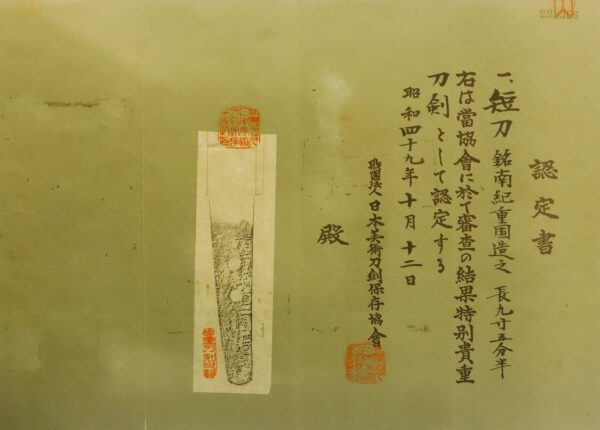 認定書
一、短刀 銘南紀重国造之 長九寸五分半
右は當協會に於て審査の結果特別貴重
刀剣として認定する
昭和四十九年十月十二日
財團法人日本美術刀剣保存協會
殿